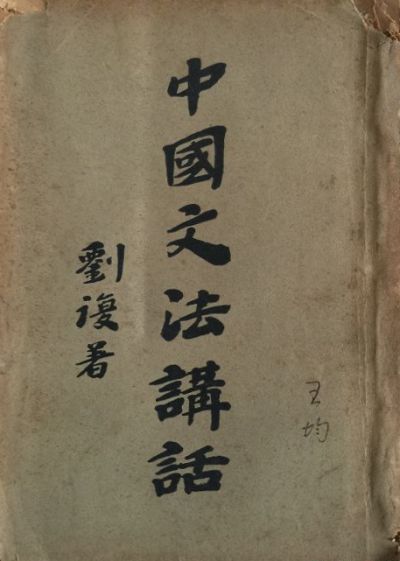 中國文法講話
劉復著
王均